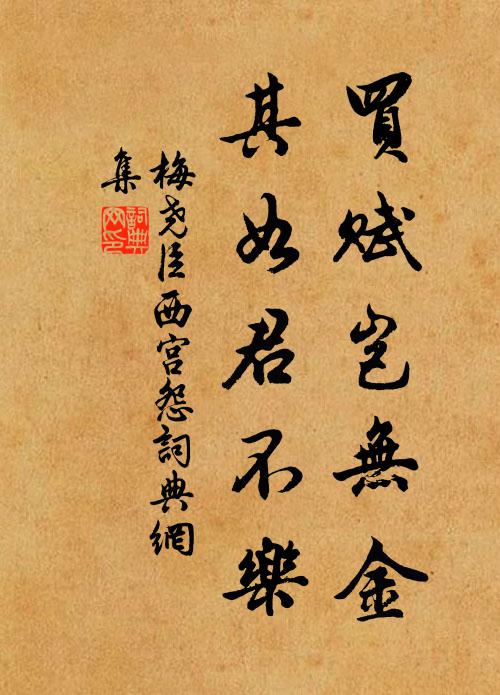 買賦豈無金
其如君不樂
梅堯臣西宮怨詞典網
集
詞典
网印